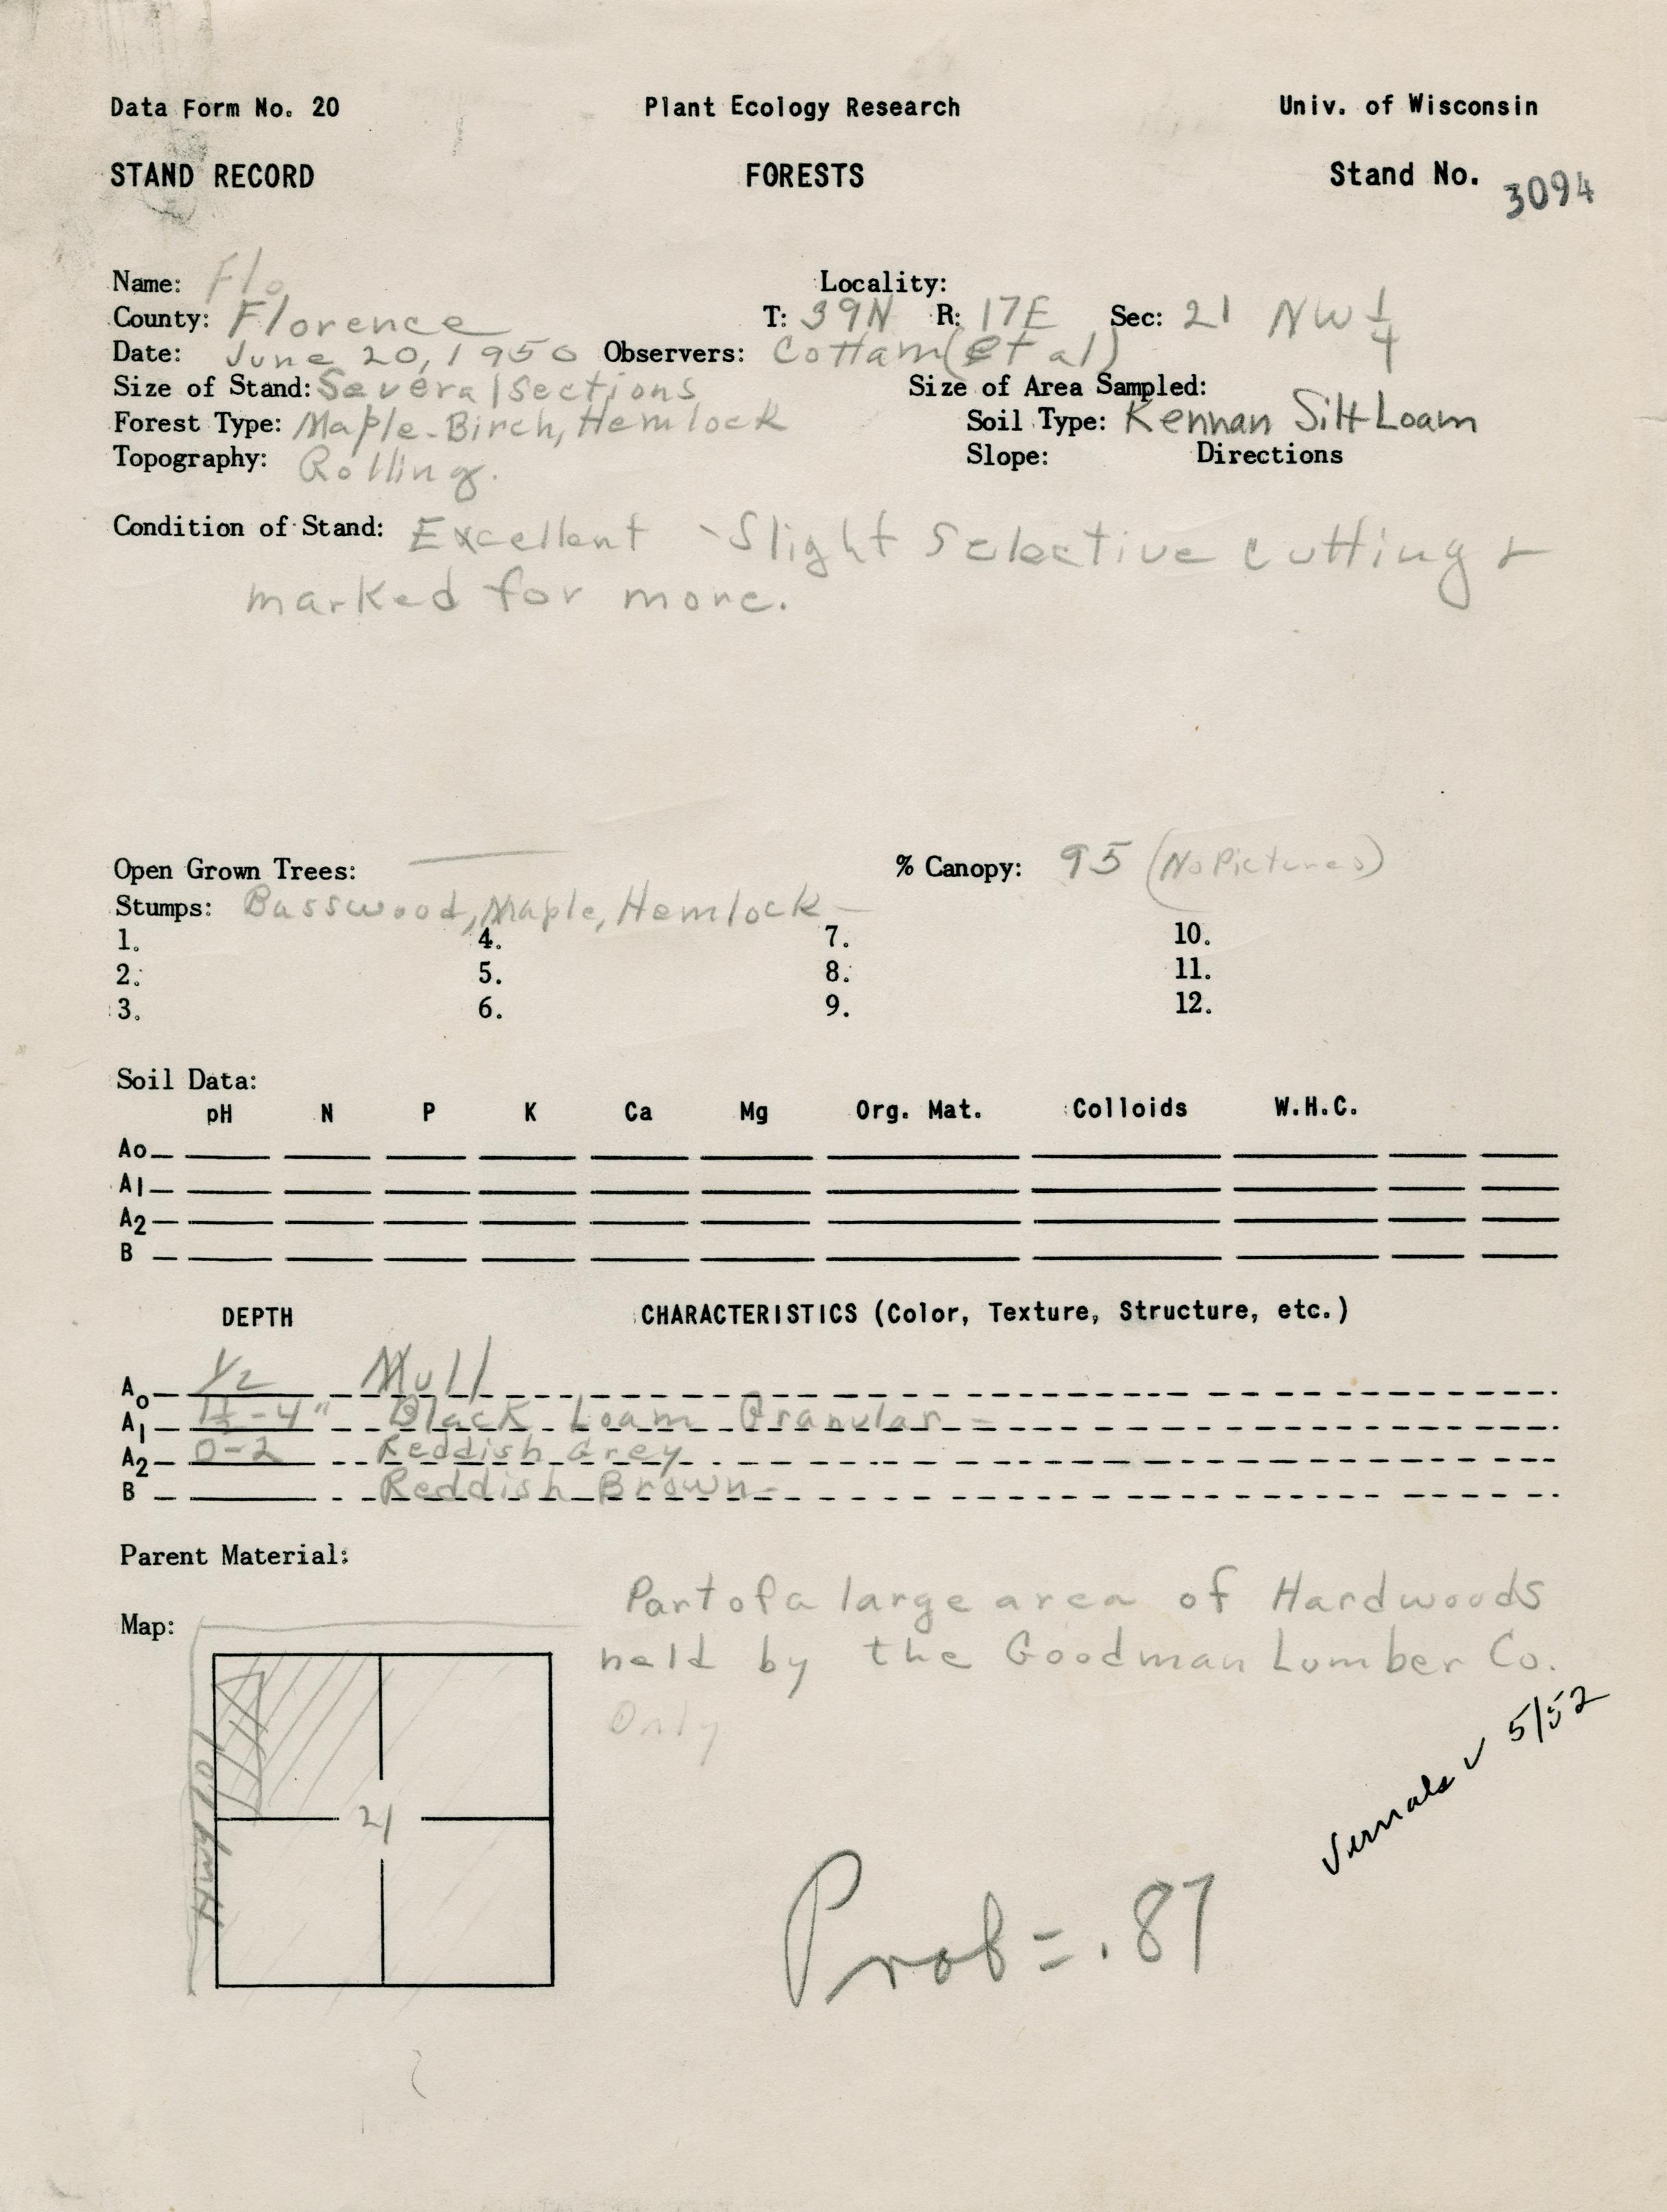 Data Form No. 20 Plant Ecology Research Univ. of Wisconsin
STAND RECORD FORESTS Stand No. 3094
Name: Flo Locality:
County: Florence T: 39N R: 17E Sec: 21 NW 1/4
Date: June 20, 1950 Observers: Cottam (et al)
Size of Stand: Several Sections Size of Area Sampled:
Forest Type: Maple-Birch, Hemlock Soil Type: Kennan Silt Loam
Topography: Rolling. Slope: Directions
Condition of Stand: Excellent - Slight Selective cutting &
marked for more.
Open Grown Trees: — % Canopy: 95 (No Pictures)
Stumps: Basswood, Maple, Hemlock -
1. 4. 7. 10.
2. 5. 8. 11.
3. 6. 9. 12.
Soil Data:
pH N P K Ca Mg Org. Mat. Colloids W.H.C.
Ao
A1
A2
B
DEPTH CHARACTERISTICS (Color, Texture, Structure, etc.)
Ao 1/2 Mull
A1 1 1/2 - 4" Black Loam Granular -
A2 0-2 Reddish Grey
B Reddish Brown -
Parent Material:
Part of a large area of Hardwoods
Map: held by the Goodman Lumber Co.
Only
Vernals ✓ 5/52
21
Hwy 101
Prob = .87